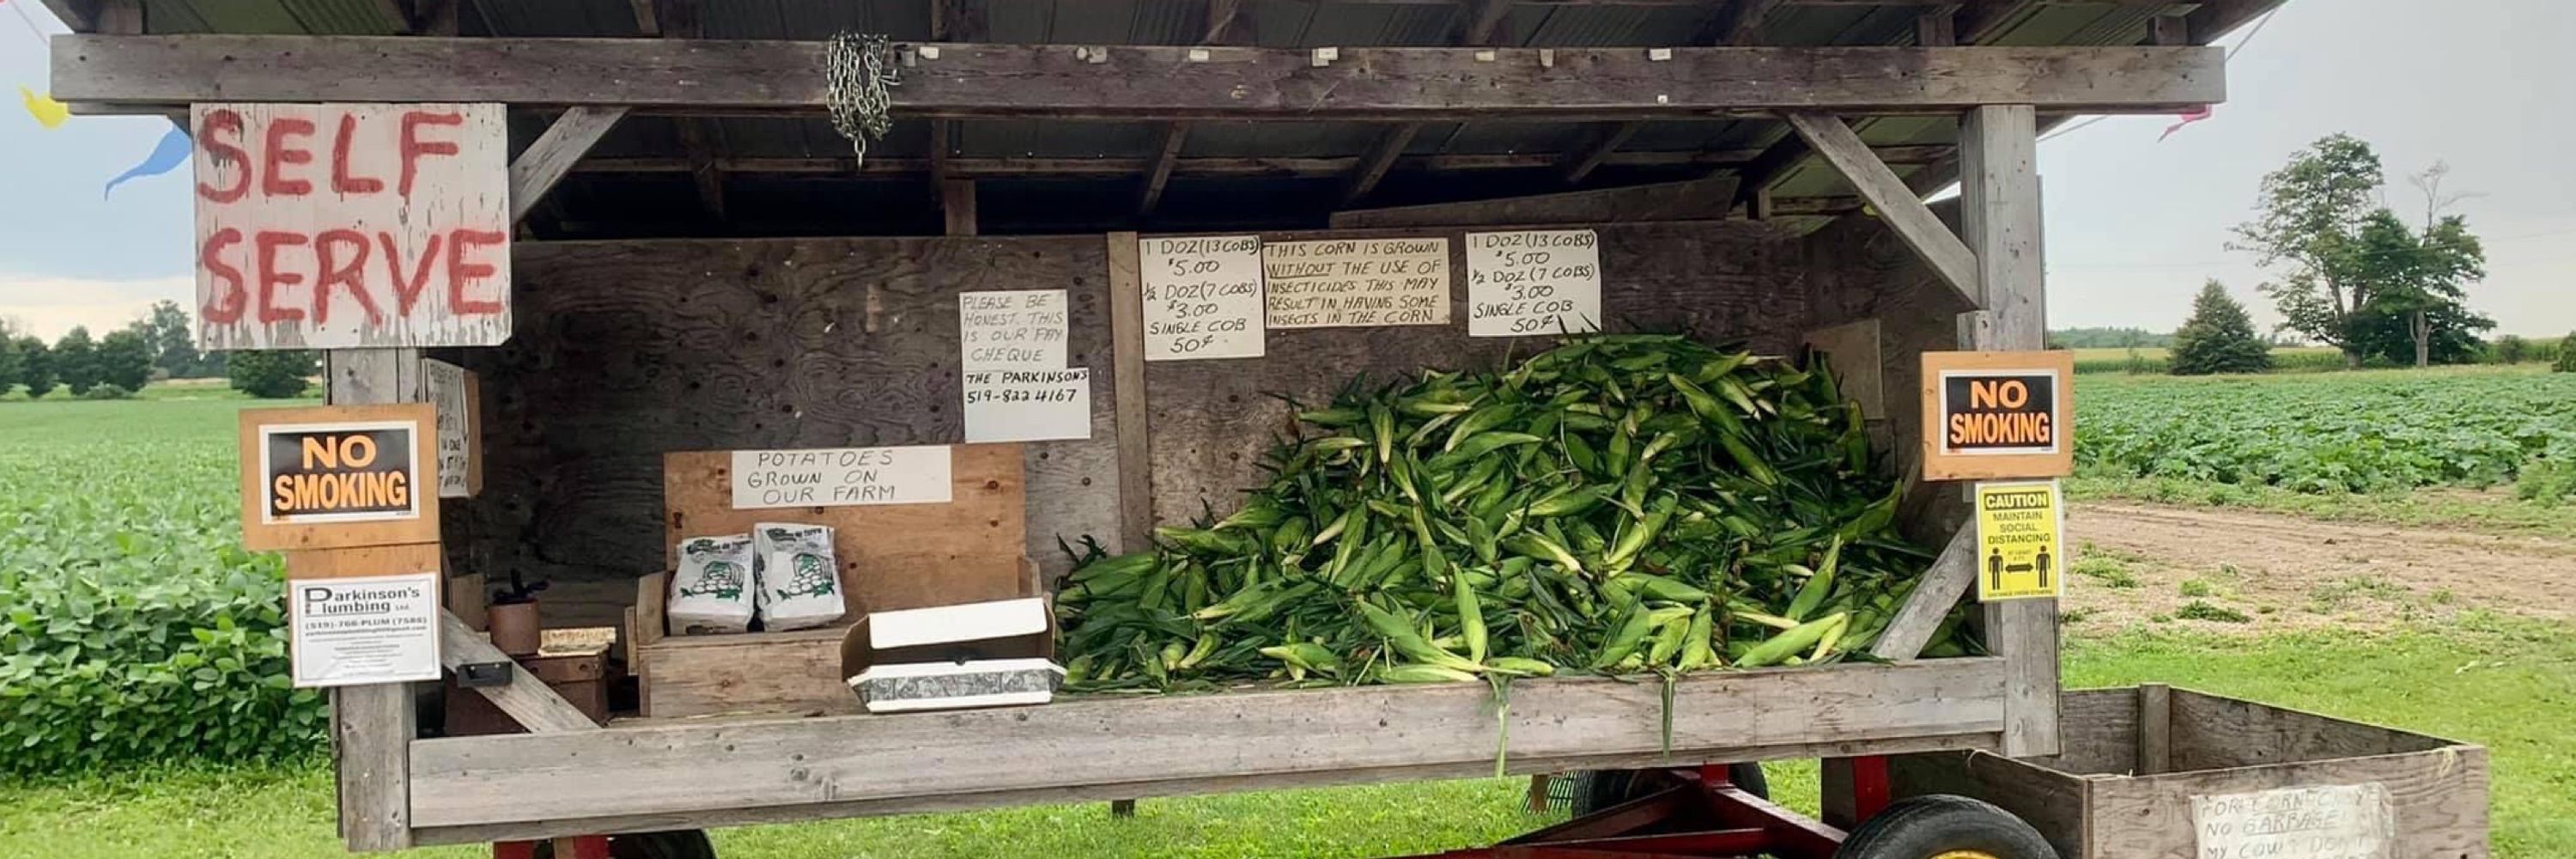 SELF
SERVE
NO
SMOKING
Parkinson's
Plumbing Ltd.
(519)-766-PLUM (7586)
POTATOES
GROWN ON
OUR FARM
PLEASE BE
HONEST. THIS
IS OUR PAY
CHEQUE
THE PARKINSONS
519-822 4167
1 DOZ (13 COBS)
$5.00
½ DOZ (7 COBS)
$3.00
SINGLE COB
50¢
THIS CORN IS GROWN
WITHOUT THE USE OF
INSECTICIDES. THIS MAY
RESULT IN HAVING SOME
INSECTS IN THE CORN
1 DOZ (13 COBS)
$5.00
½ DOZ (7 COBS)
$3.00
SINGLE COB
50¢
NO
SMOKING
CAUTION
MAINTAIN
SOCIAL
DISTANCING
NO GARBAGE!
MY COWS DON'T